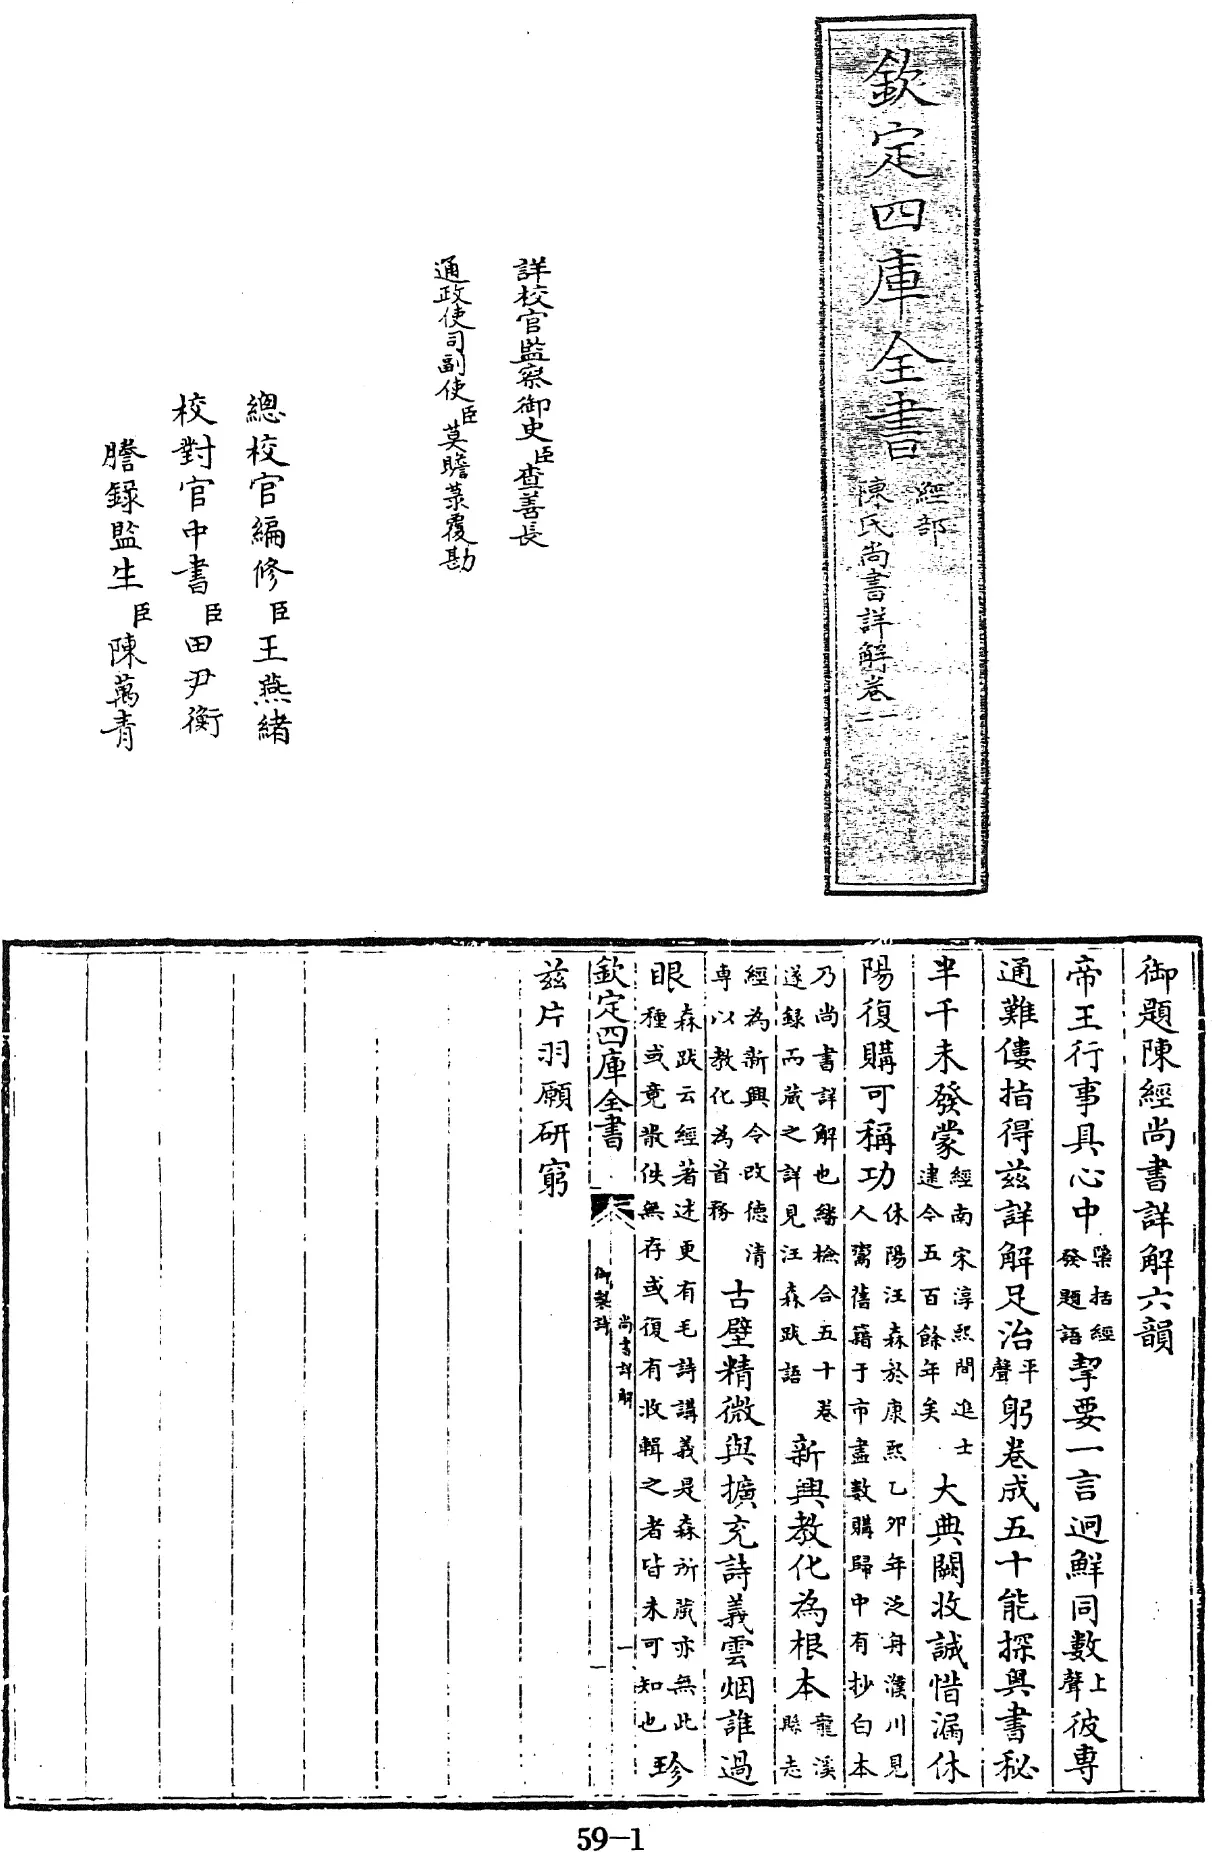 欽定四庫全書
經部
陳氏尚書詳解卷一
二
詳校官監察御史臣查善長
通政使司副使臣莫瞻菉覆勘
總校官編修臣王燕緒
校對官中書臣田尹衡
謄錄監生臣陳萬青
御題陳經尚書詳解六韻
帝王行事具心中櫽括經發題語挈要一言迥鮮同數上聲彼專
通難僂指得茲詳解足治平聲躬卷成五十能探奧書秘
半千未發蒙經南宋淳熙間進士逮今五百餘年矣大典闕收誠惜漏休
陽復購可稱功休陽汪森於康熙乙卯年泛舟濮川見人鬻舊籍于市盡數購歸中有抄白本
乃尚書詳解也繙檢合五十卷遂録而蔵之詳見汪森跋語新興教化為根本龍溪縣志
經為新興令改德清專以教化為首務古壁精微與擴充詩義雲烟誰過
眼森跋云經著述更有毛詩講義是森所蔵亦無此種或竟散佚無存或復有收輯之者皆未可知也珍
欽定四庫全書
御製詩
尚書詳解
一
茲片羽願研窮
59-1